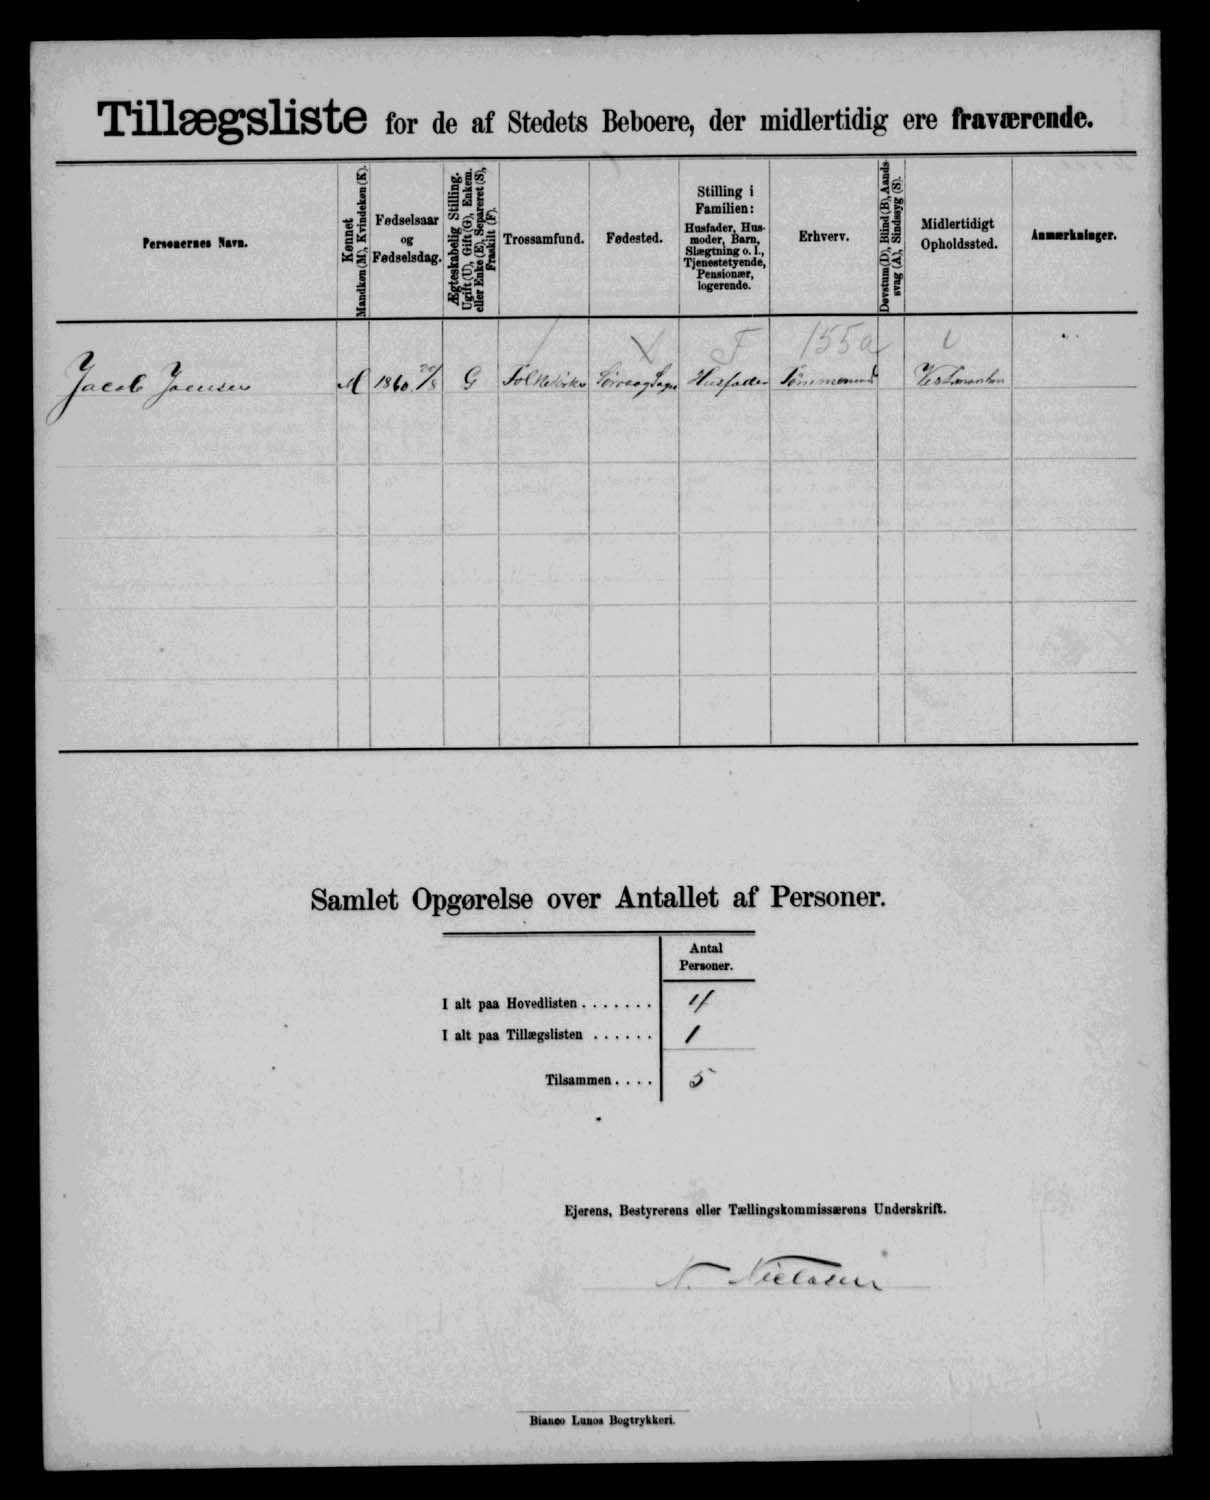 Tillægsliste for de af Stedets Beboere, der midlertidig ere fraværende.
Personernes Navn.
Kønnet
Mandkøn (M), Kvindekøn (K).
Fødselsaar
og
Fødselsdag.
Ægteskabelig Stilling.
Ugift (U), Gift (G), Enkem.
eller Enke (E), Separeret (S),
Fraskilt (F).
Trossamfund.
Fødested.
Stilling i
Familien:
Husfader, Hus-
moder, Barn,
Slægtning o. l.,
Tjenestetyende,
Pensionær,
logerende.
Erhverv.
Døvstum (D), Blind (B), Aands-
svag (A), Sindssyg (S).
Midlertidigt
Opholdssted.
Anmærkninger.
F 155a
Jacob Joensen M 1860 20/8 G Folkekirken Husfader Tømmermand Vestmanhan
Samlet Opgørelse over Antallet af Personer.
Antal
Personer.
I alt paa Hovedlisten . . . . . . . 4
I alt paa Tillægslisten . . . . . . 1
Tilsammen . . . . 5
Ejerens, Bestyrerens eller Tællingskommissærens Underskrift.
N. Nielsen
Bianco Lunos Bogtrykkeri.